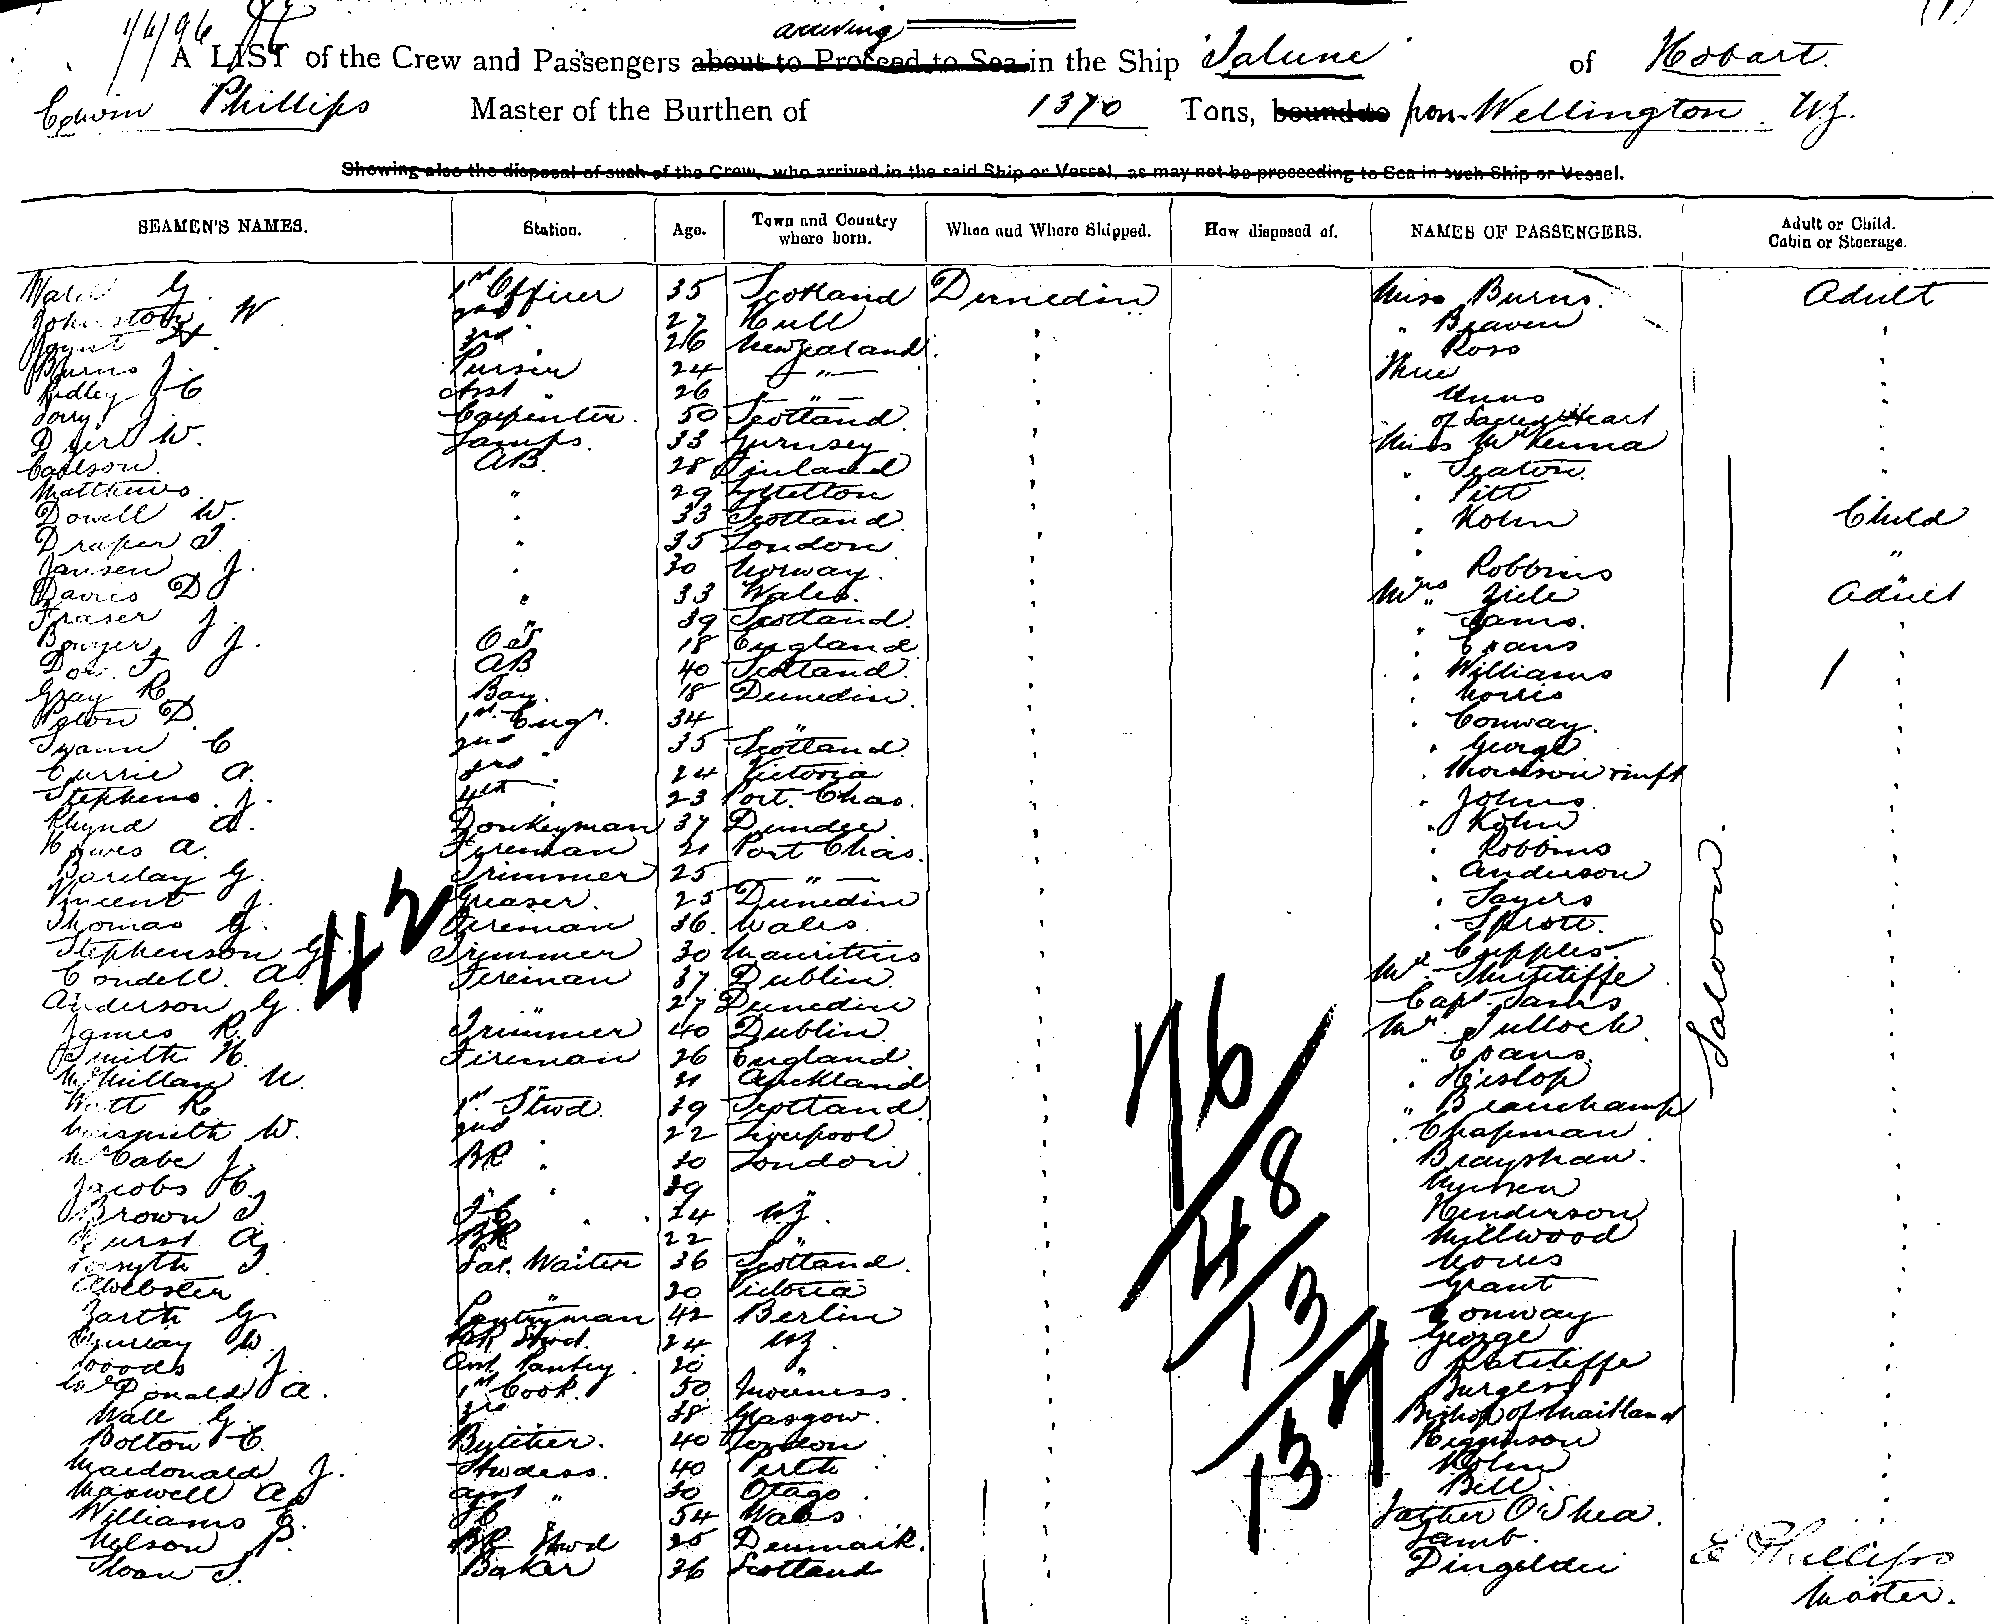 (1)
1/4/96
arriving
A LIST of the Crew and Passengers about to Proceed to Sea in the Ship "Talune" of Hobart.
Edwin Phillips Master of the Burthen of 1370 Tons, bound to from Wellington NZ.
Showing also the disposal of such of the Crew, who arrived in the said Ship or Vessel, as may not be proceeding to Sea in such Ship or Vessel.
SEAMEN'S NAMES. Station. Age. Town and Country where born. When and Where Shipped. How disposed of. NAMES OF PASSENGERS. Adult or Child. Cabin or Steerage.
G. 1st Officer 35 Scotland Dunedin Miss Burns. Adult
Johnstone W 2nd " 27 Hull " Beaven
3rd " 26 New Zealand " Ross
Burns J. Purser 24 " Three
Ridley J C Asst " 26 " Nuns
J Carpenter 50 Scotland of Sacred Heart
W. Lamps. 33 Gurnsey Miss McKenna
Carlson. AB. 28 Finland " Seaton.
Matthews. " 29 Lyttelton " Pitt
Dowell W. " 33 Scotland " Kohn Child
Draper T. " 35 London "
Jansen J. " 30 Norway. " Robbins
Davies D " 33 Wales. Mrs Ziele Adult
Fraser J. " 39 Scotland. " Sams.
Bowyer J. OS 18 England " Evans
Dow. J AB 40 Scotland. " Williams
Gray R Boy. 18 Dunedin. " Norris
D. 1st Engr. 34 " " Conway.
Swann C 2nd " 35 Scotland. " George
Currie A. 3rd " 24 Victoria " Morrison
Stephens. J. 4th " 23 Port. Chas. " Johns
Rhynd A. Donkeyman 37 Dundee. " Kohn
A. Fireman 21 Port Chas. " Robbins
Barclay G. Trimmer 25 " " Anderson
Vincent J. Greaser. 25 Dunedin " Sayers
Thomas G. Fireman 36. Wales. " Sprott.
Stephenson G. Trimmer 30 Mauritius " Cupples.
Condell. A. Fireman 37 Dublin. Mr.
Anderson G. " 27 Dunedin Capt. Sams
James R. Trimmer 40 Dublin. Mr. Tulloch.
Smith H. Fireman 26 England. " Evans.
McMillan N. " 21 Auckland " Hislop
Watt R 1st Stwd. 39 Scotland. " Beauchamp
Naismith W. 2nd " 22 Liverpool " Chapman
McCabe J. BR " 30 London Brayshaw.
Jacobs H. " " 39 "
Brown T FC " 24 NZ. Henderson
Hurst A. BR " 22 " Millwood
Forsyth J Sal. Waiter 36 Scotland. Norris
A Webster " 20 Victoria Grant
Zarth G Pantryman 42 Berlin Conway
Murray W. BR Stwd. 24 NZ George
Woods J. Asst Pantry 20 " Ratcliffe
McDonald A. 1st Cook. 50 Inverness. Burgess
Wall G. 38 Glasgow. Bishop of Maitland
Bolton C. Butcher. 40 London Higginson
Macdonald J. Stwdess. 40 Perth Kohn
Maxwell A. asst " 30 Otago. Bell.
Williams E. FC 54 Wales. Father O'Shea.
Nelson P. BR Stwd 25 Denmark. Lamb.
Sloan S. Baker 36 Scotland Dingeldei
42
Saloon.
76
48
13
137
E Phillips
Master.